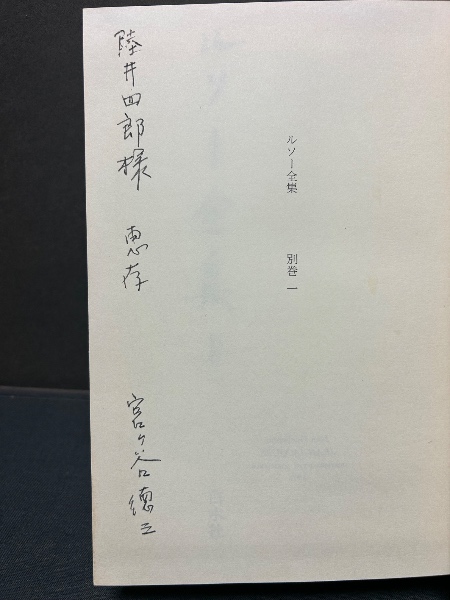 ルソー全集 別巻 一
陸井四郎様 恵存
宮ケ谷徳三